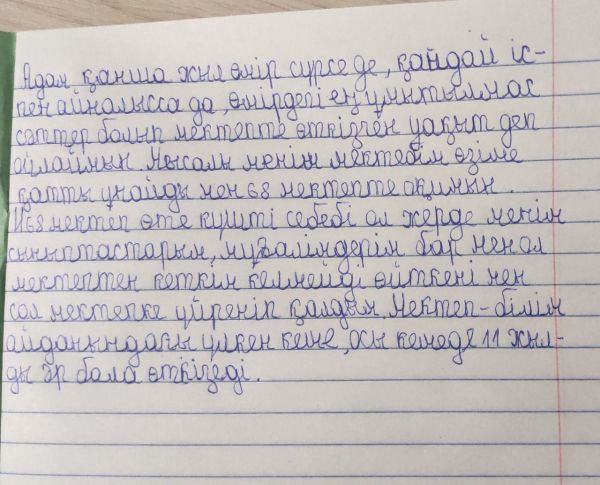 Адам қанша жыл өмір сүрсе де, қандай іс-
пен айналысса да, өмірдегі ең ұмытылмас
сәттер болып мектепте өткізген уақыт деп
ойлаймын. Мысалы менің мектебім өзіме
қатты ұнайды мен 68 мектепте оқимын.
№68 мектеп өте күшті себебі ол жерде менің
сыныптастарым, мұғалімдерім бар мен ол
мектептен кеткім келмейді өйткені мен
сол мектепке үйреніп қалдым. Мектеп-білім
айдынындағы үлкен кеме, осы кемеде 11 жыл-
ды әр бала өткізеді.